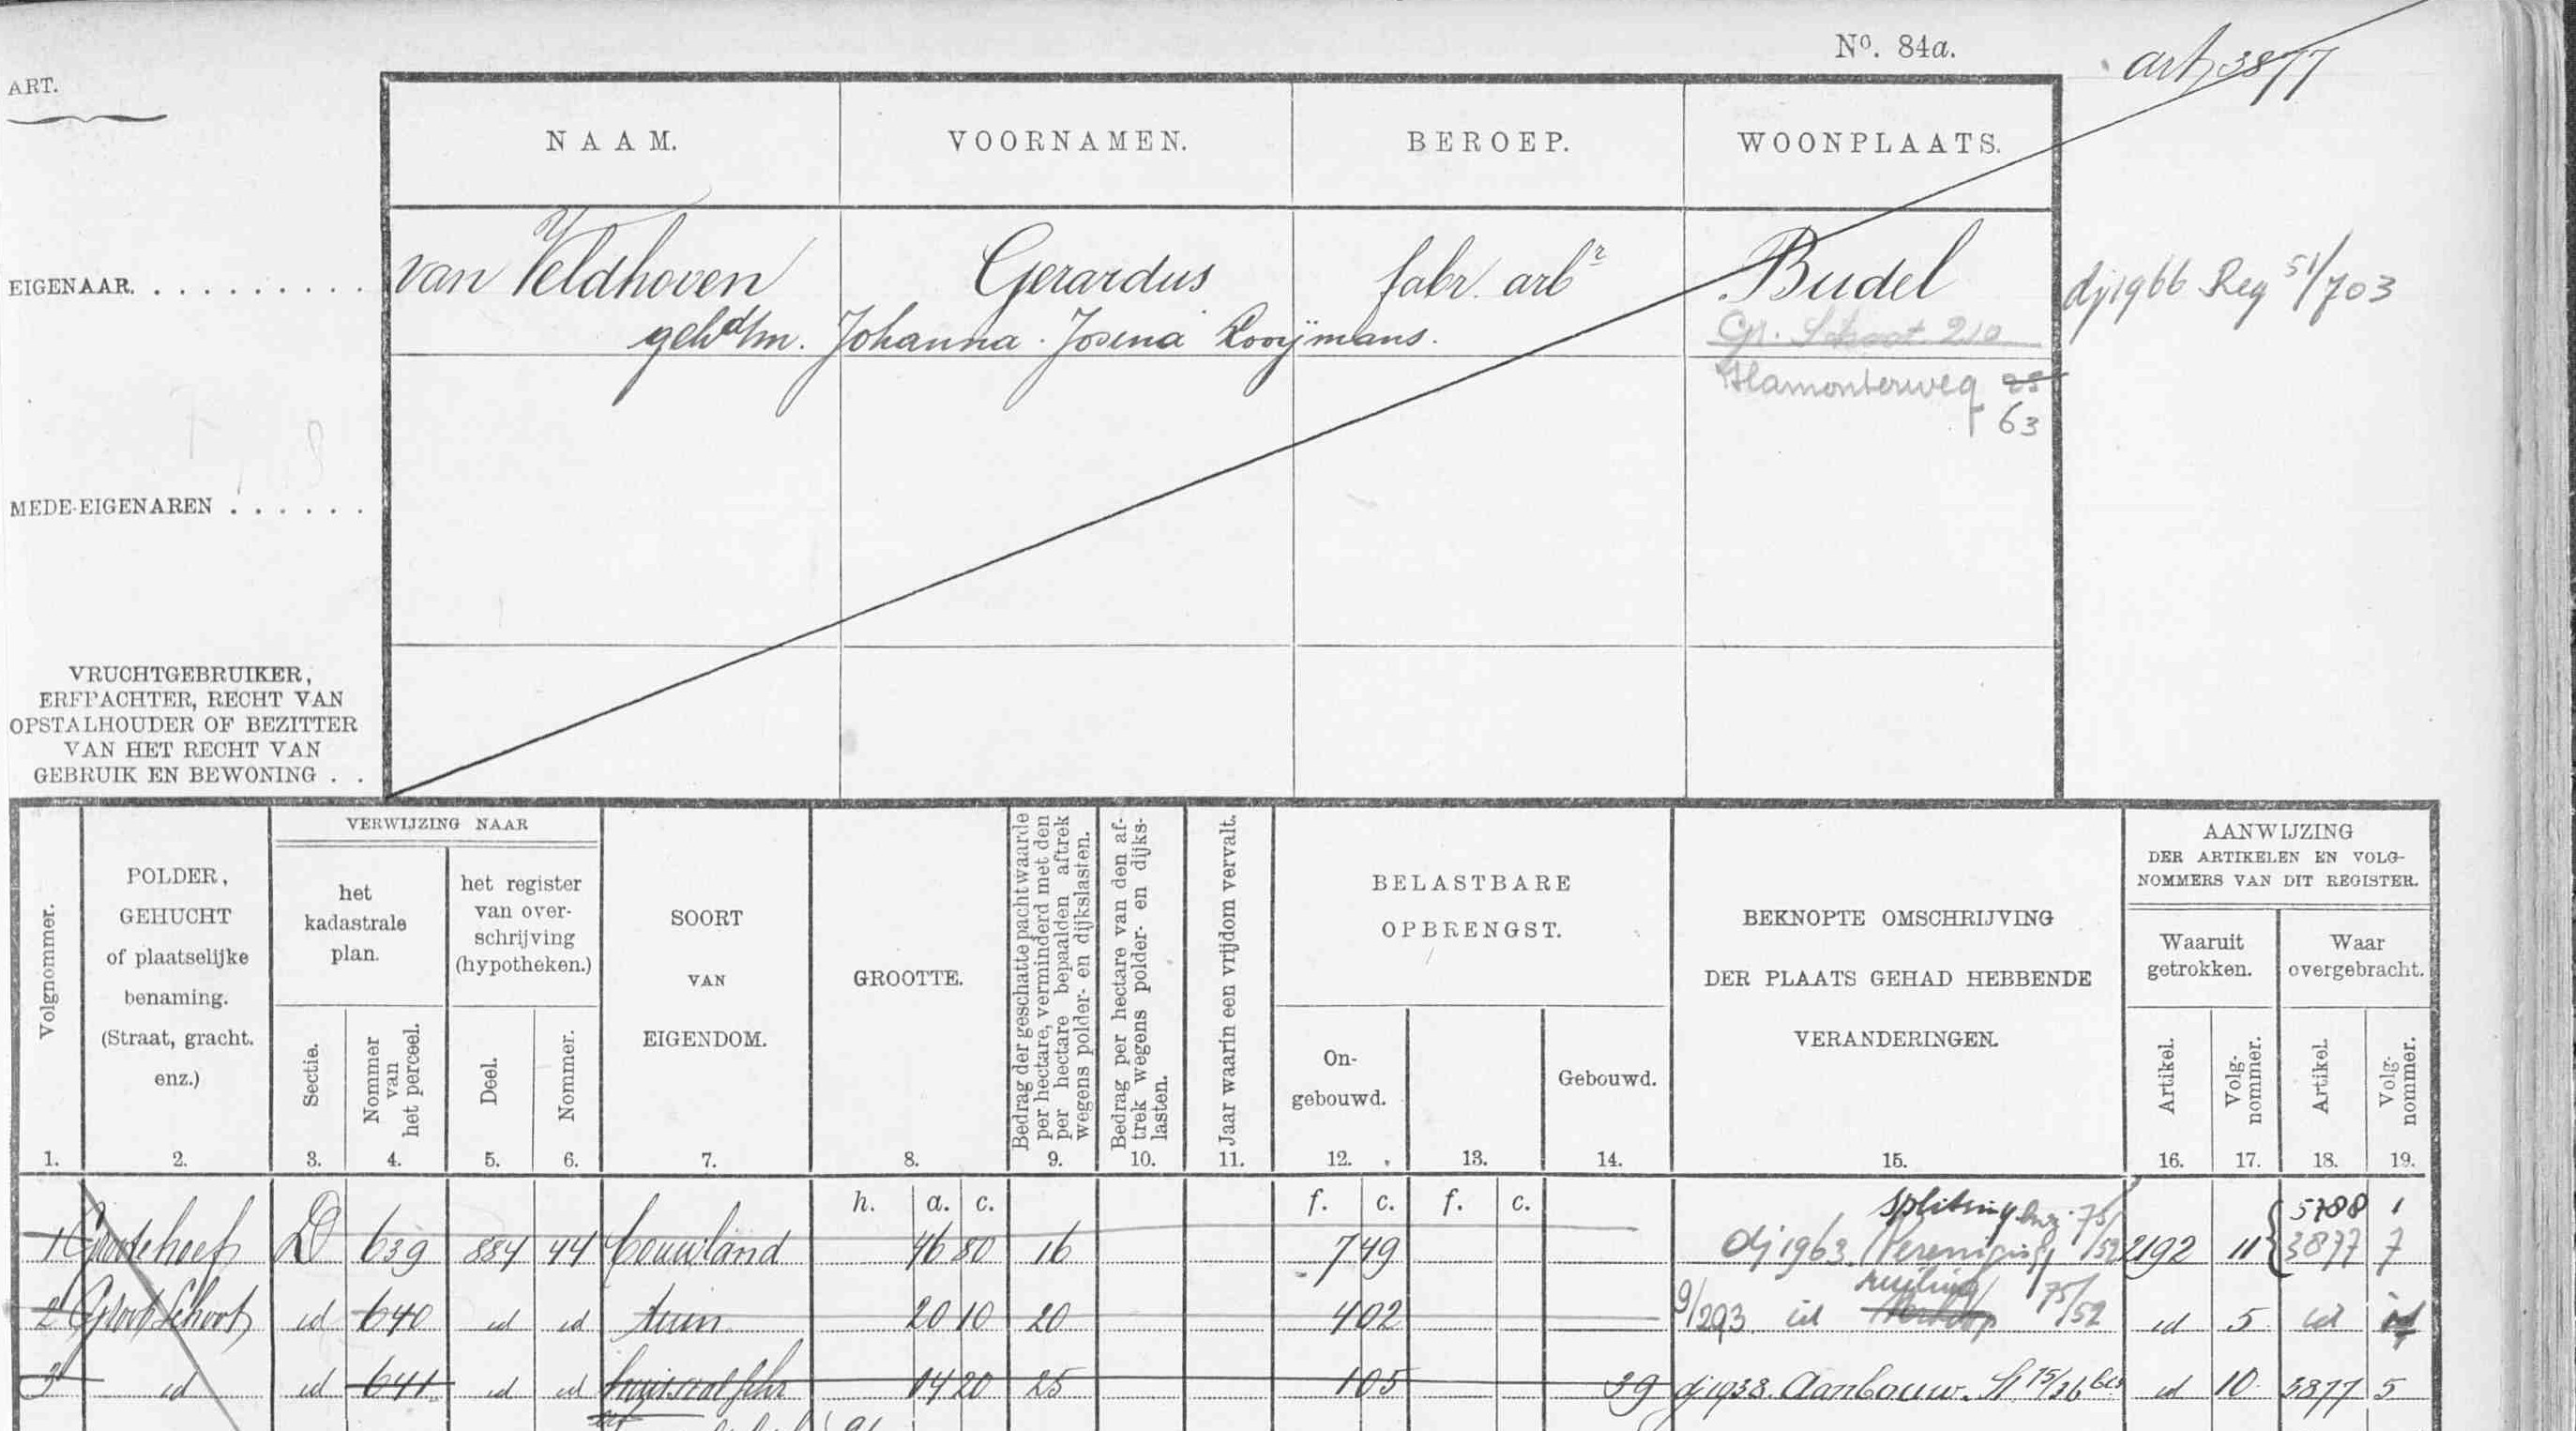 Nº. 84a.
art 3877
ART.
NAAM. VOORNAMEN. BEROEP. WOONPLAATS.
EIGENAAR. . . . . . . . . . van Veldhoven Gerardus fabr. arbr Budel dj1966 Reg 51/703
gehd/m. Johanna Josina Rooijmans. Gr. Schoot 210
Hamonterweg 28
63
MEDE-EIGENAREN . . . . . .
VRUCHTGEBRUIKER,
ERFPACHTER, RECHT VAN
OPSTALHOUDER OF BEZITTER
VAN HET RECHT VAN
GEBRUIK EN BEWONING . .
Volgnommer.
1.
POLDER,
GEHUCHT
of plaatselijke
benaming.
(Straat, gracht.
enz.)
2.
VERWIJZING NAAR
het
kadastrale
plan.
Sectie.
3.
Nommer
van
het perceel.
4.
het register
van over-
schrijving
(hypotheken.)
Deel.
5.
Nommer.
6.
SOORT
VAN
EIGENDOM.
7.
GROOTTE.
8.
Bedrag der geschatte pachtwaarde
per hectare, verminderd met den
per hectare bepaalden aftrek
wegens polder- en dijkslasten.
9.
Bedrag per hectare van den af-
trek wegens polder- en dijks-
lasten.
10.
Jaar waarin een vrijdom vervalt.
11.
BELASTBARE
OPBRENGST.
On-
gebouwd.
12.
13.
Gebouwd.
14.
BEKNOPTE OMSCHRIJVING
DER PLAATS GEHAD HEBBENDE
VERANDERINGEN.
15.
AANWIJZING
DER ARTIKELEN EN VOLG-
NOMMERS VAN DIT REGISTER.
Waaruit
getrokken.
Artikel.
16.
Volg-
nommer.
17.
Waar
overgebracht.
Artikel.
18.
Volg-
nommer.
19.
h. a. c. f. c. f. c. splitsing 75/ 5788 1
1 Groote hoef D 639 884 44 bouwland 46 80 16 7 49 dj1963 Vereniging /52 2192 11 3877 7
ruiling
2 Groot Schoot id 640 id id tuin 20 10 20 4 02 9/293 id 75/52 id 5 id
3 id id 641 id id huis schr 14 20 25 1 05 39 dj1938. Aanbouw. St 15/36 bis id 10 3877 5